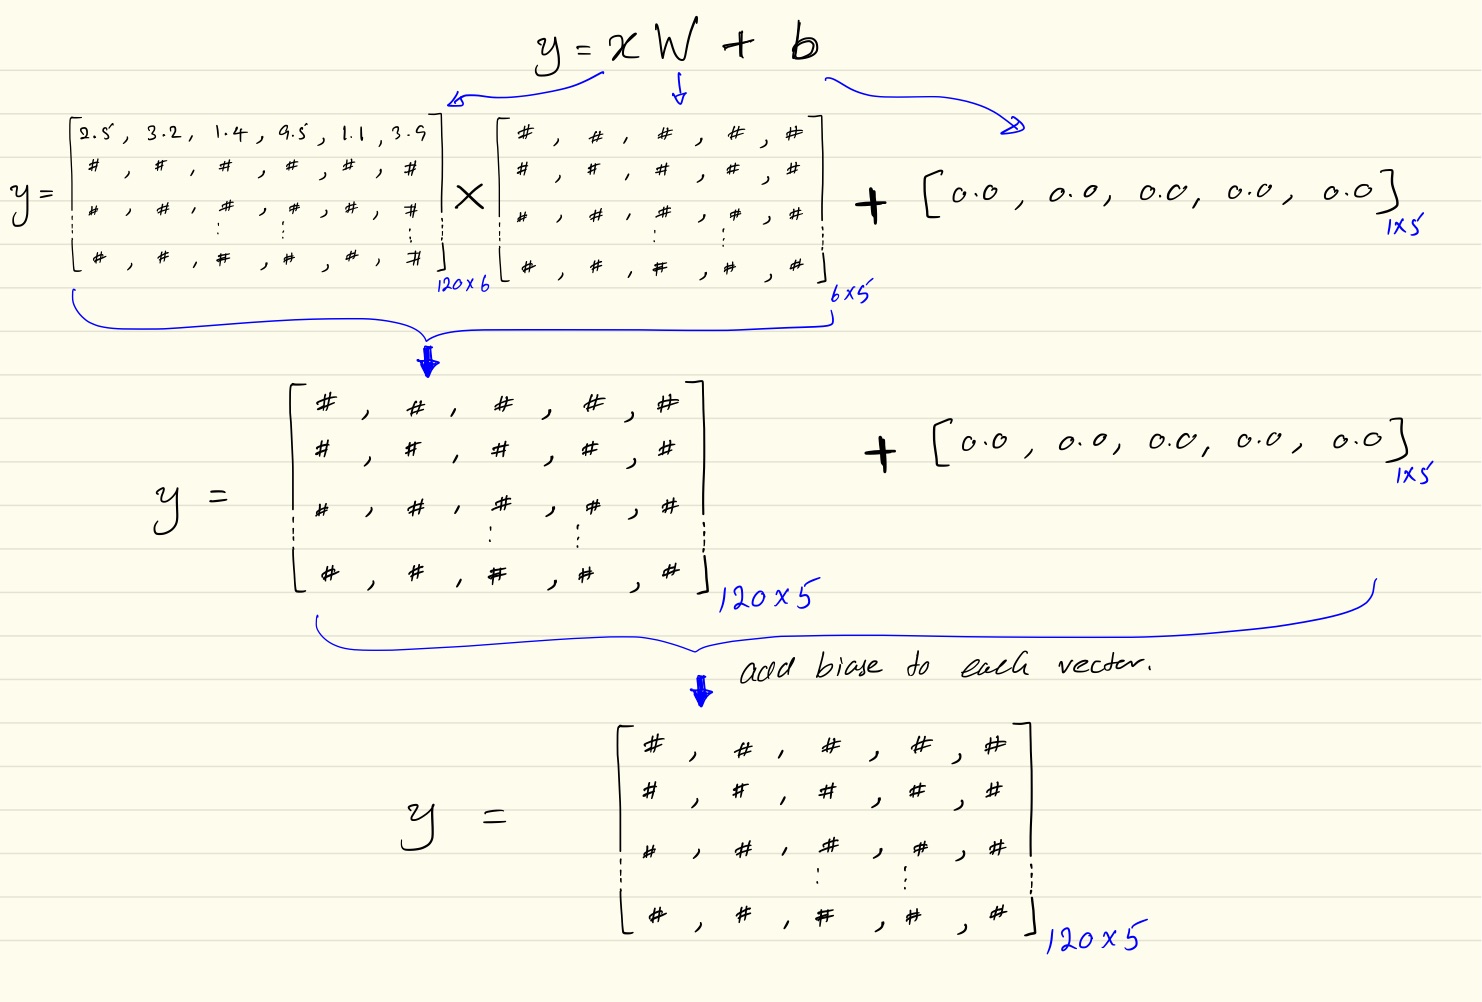 y = x W + b
y = [ 2.5 , 3.2 , 1.4 , 9.5 , 1.1 , 3.9
# , # , # , # , # , #
# , # , # , # , # , #
# , # , # , # , # , # ] 120 x 6
×
[ # , # , # , # , #
# , # , # , # , #
# , # , # , # , #
# , # , # , # , # ] 6 x 5
+ [ 0.0 , 0.0 , 0.0 , 0.0 , 0.0 ] 1 x 5
y = [ # , # , # , # , #
# , # , # , # , #
# , # , # , # , #
# , # , # , # , # ] 120 x 5
+ [ 0.0 , 0.0 , 0.0 , 0.0 , 0.0 ] 1 x 5
add biase to each vector.
y = [ # , # , # , # , #
# , # , # , # , #
# , # , # , # , #
# , # , # , # , # ] 120 x 5